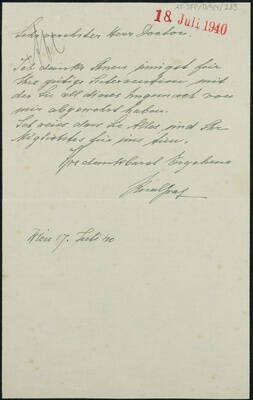 18. Juli 1940
Sehr geehrter Herr Doctor.
Ich danke Ihnen innigst für
Ihre gütige Intervention mit
der Sie all dieses Ungemach von
mir abgewehrt haben.
Ich weiss dass Sie Alles und Ihr
Möglichstes für uns tun.
Ihre dankbarst Ergebene
Wien 17. Juli 40